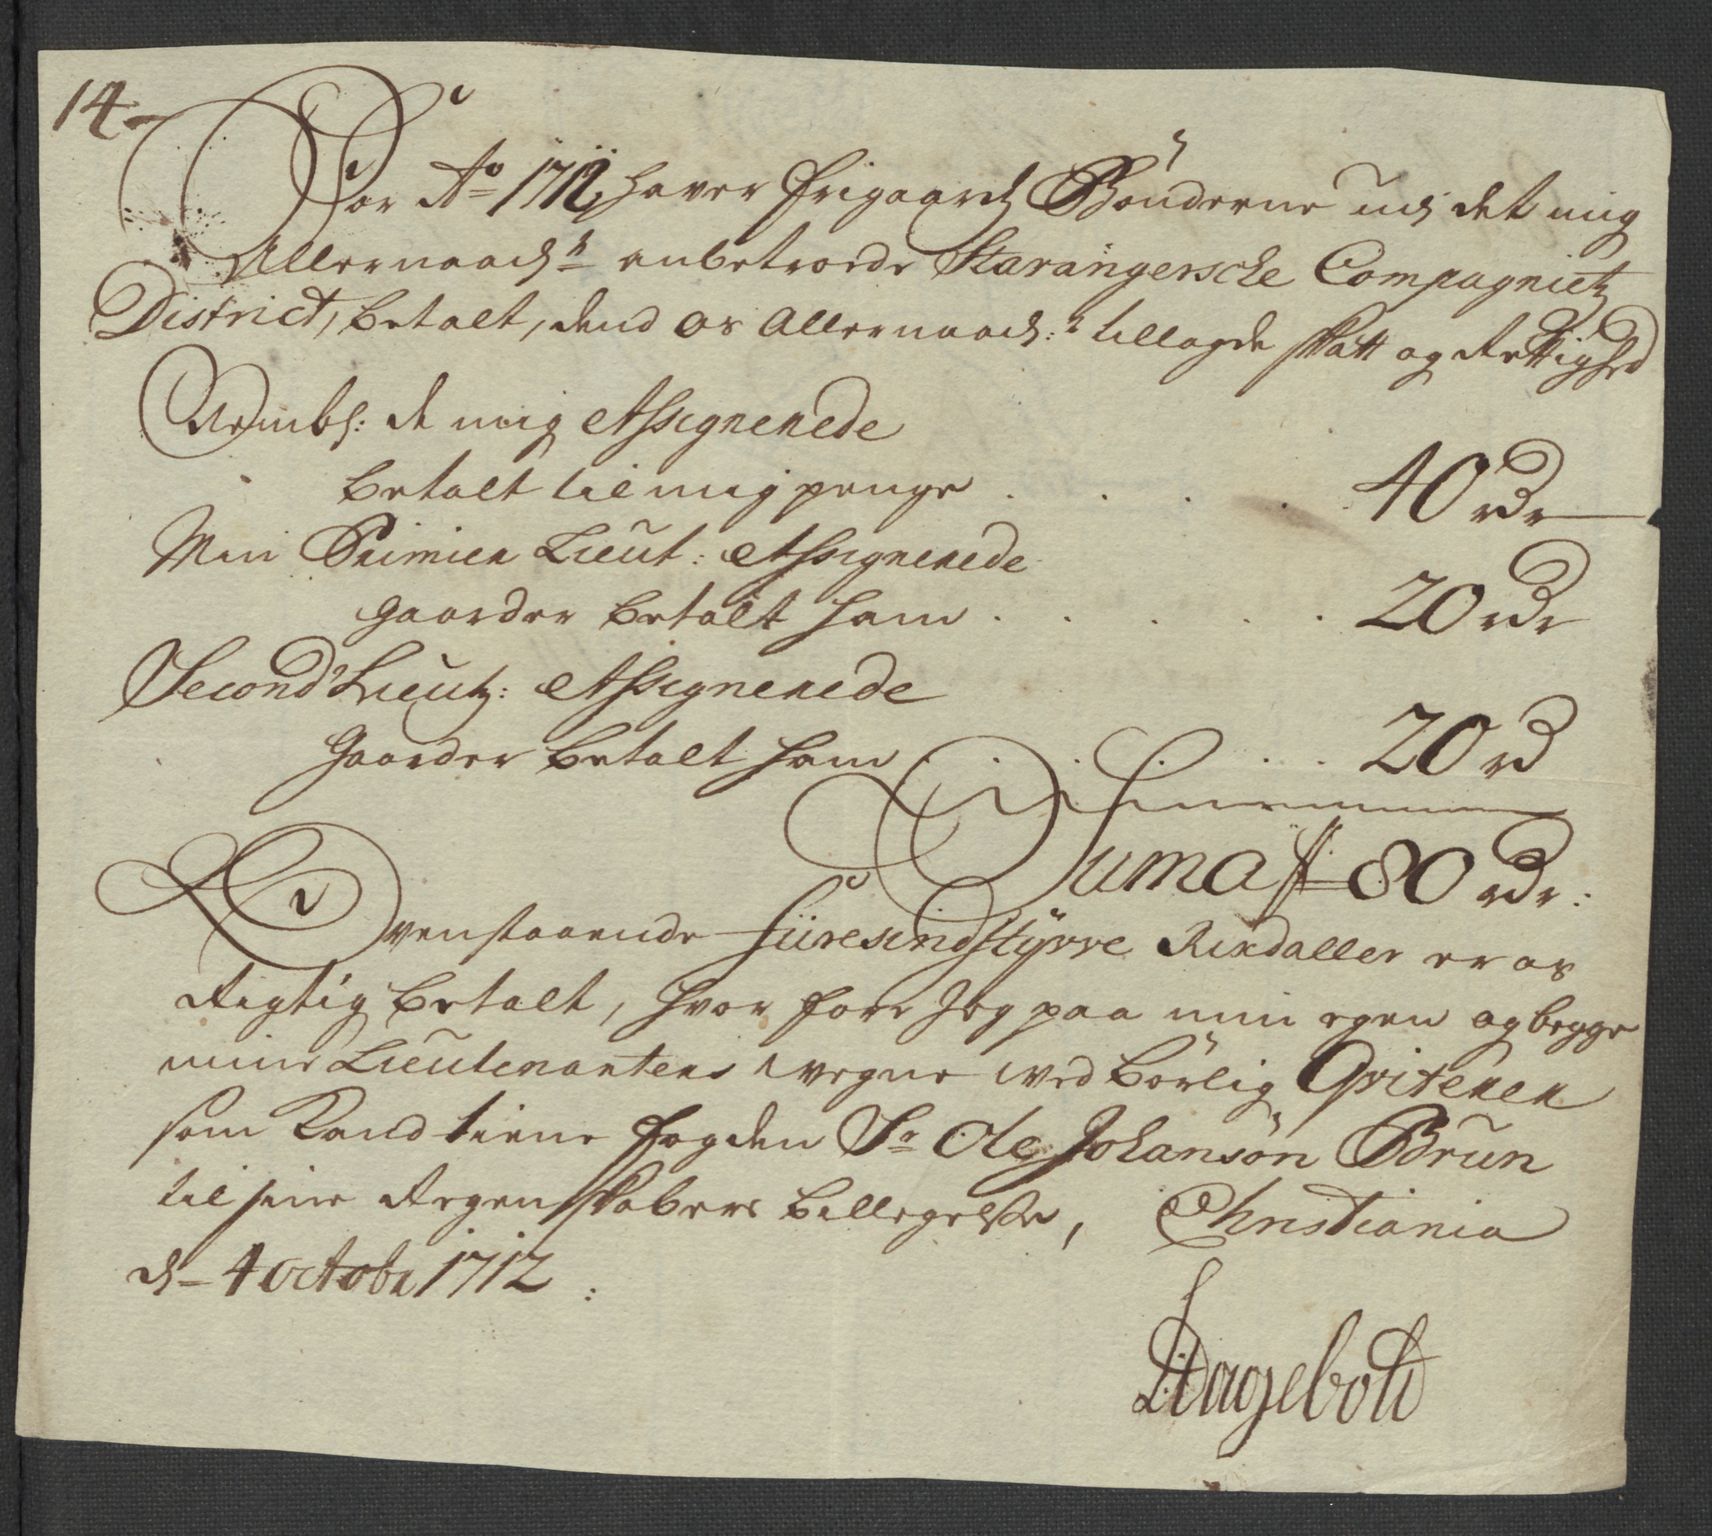 14
For Ao 1712 haver frigaards Bönderne udj det mig
Allernaadst anbetroede Stavangersche Compagnietz
District, betalt, dend os Allernaadst: tillagde skatt og Rettighed
Nembl: de mig Assignerede
betalt til mig penge . . . . 40 Rdr
Min Primier Lieut: Assignerede
gaarder betalt ham . . . . . 20 Rdr
Second Lieutz: Assignerede
gaarder betalt ham . . . . . 20 Rd
Suma 80 Rdr:
Ovenstaaende fiiresindstÿvve Rixdaller er os
Rigtig betalt, hvor fore Jeg paa min egen og begge
mine Lieutenanters vegne ved börlig Qviterer
som Kand tiene fogden Sr Ole Johansön Brun
til sine Regenskabers billegelse, Christiania
d- 4 octobr 1712 :